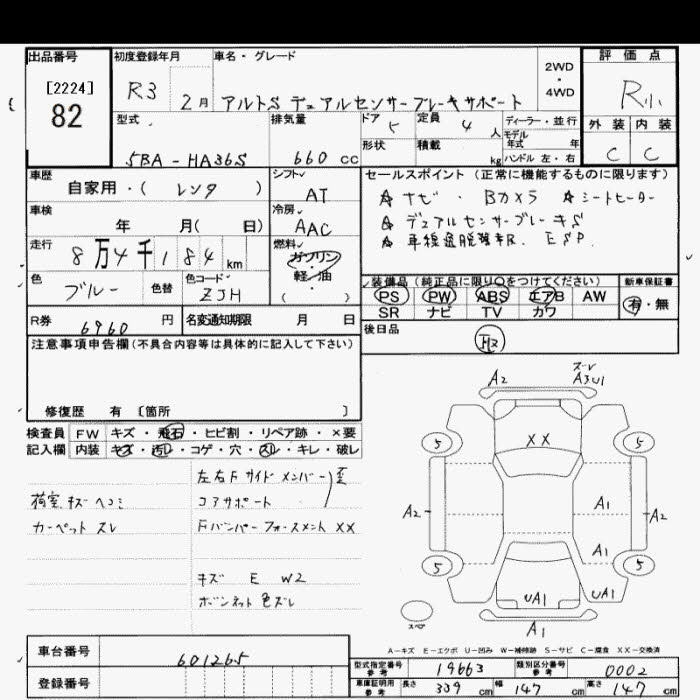 出品番号
[2224]
82
初度登録年月
R3 2月
車名・グレード
アルトS デュアルセンサーブレーキサポート
2WD
・
4WD
評価点
R小
外装 内装
C C
型式
5BA-HA36S
排気量
660 cc
ドア 5
定員 4 人
形状
積載 kg
ディーラー・並行
モデル年式 年
ハンドル 左・右
車歴
自家用・( レンタ )
シフト
AT
車検
年 月( 日)
冷房
AAC
走行
8万4千184 km
燃料
ガソリン
軽油
( )
色
ブルー
色替
色コード
ZJH
セールスポイント (正常に機能するものに限ります)
☆ ナビ・Bカメラ ☆シートヒーター
☆ デュアルセンサーブレーキS
☆ ESP
装備品 (純正品に限り○をつけてください)
PS PW ABS エアB AW
SR ナビ TV カワ
新車保証書
有・無
R券 6960 円
名変通知期限 月 日
後日品
注意事項申告欄 (不具合内容等は具体的に記入して下さい)
修復歴 有 〔箇所 〕
検査員 FW キズ・飛石・ヒビ割・リペア跡・×要
記入欄 内装 キズ・汚レ・コゲ・穴・スレ・キレ・破レ
荷室 キズ ヘコミ
カーペット スレ
左右Fサイドメンバー 歪
コアサポート
Fバンパーフォースメント XX
キズ E W2
ボンネット色ズレ
A2
ズレ
A3U1
5 XX 5
A2 A1 A2
A1
5 5
UA1 UA1
スペア
A1
A-キズ E-エクボ U-凹み W-補修跡 S-サビ C-腐食 XX-交換済
車台番号 601265
登録番号
型式指定番号 参考 19663
類別区分番号 参考 0002
車庫証明用 参考
長さ 339 cm 幅 147 cm 高さ 147 cm